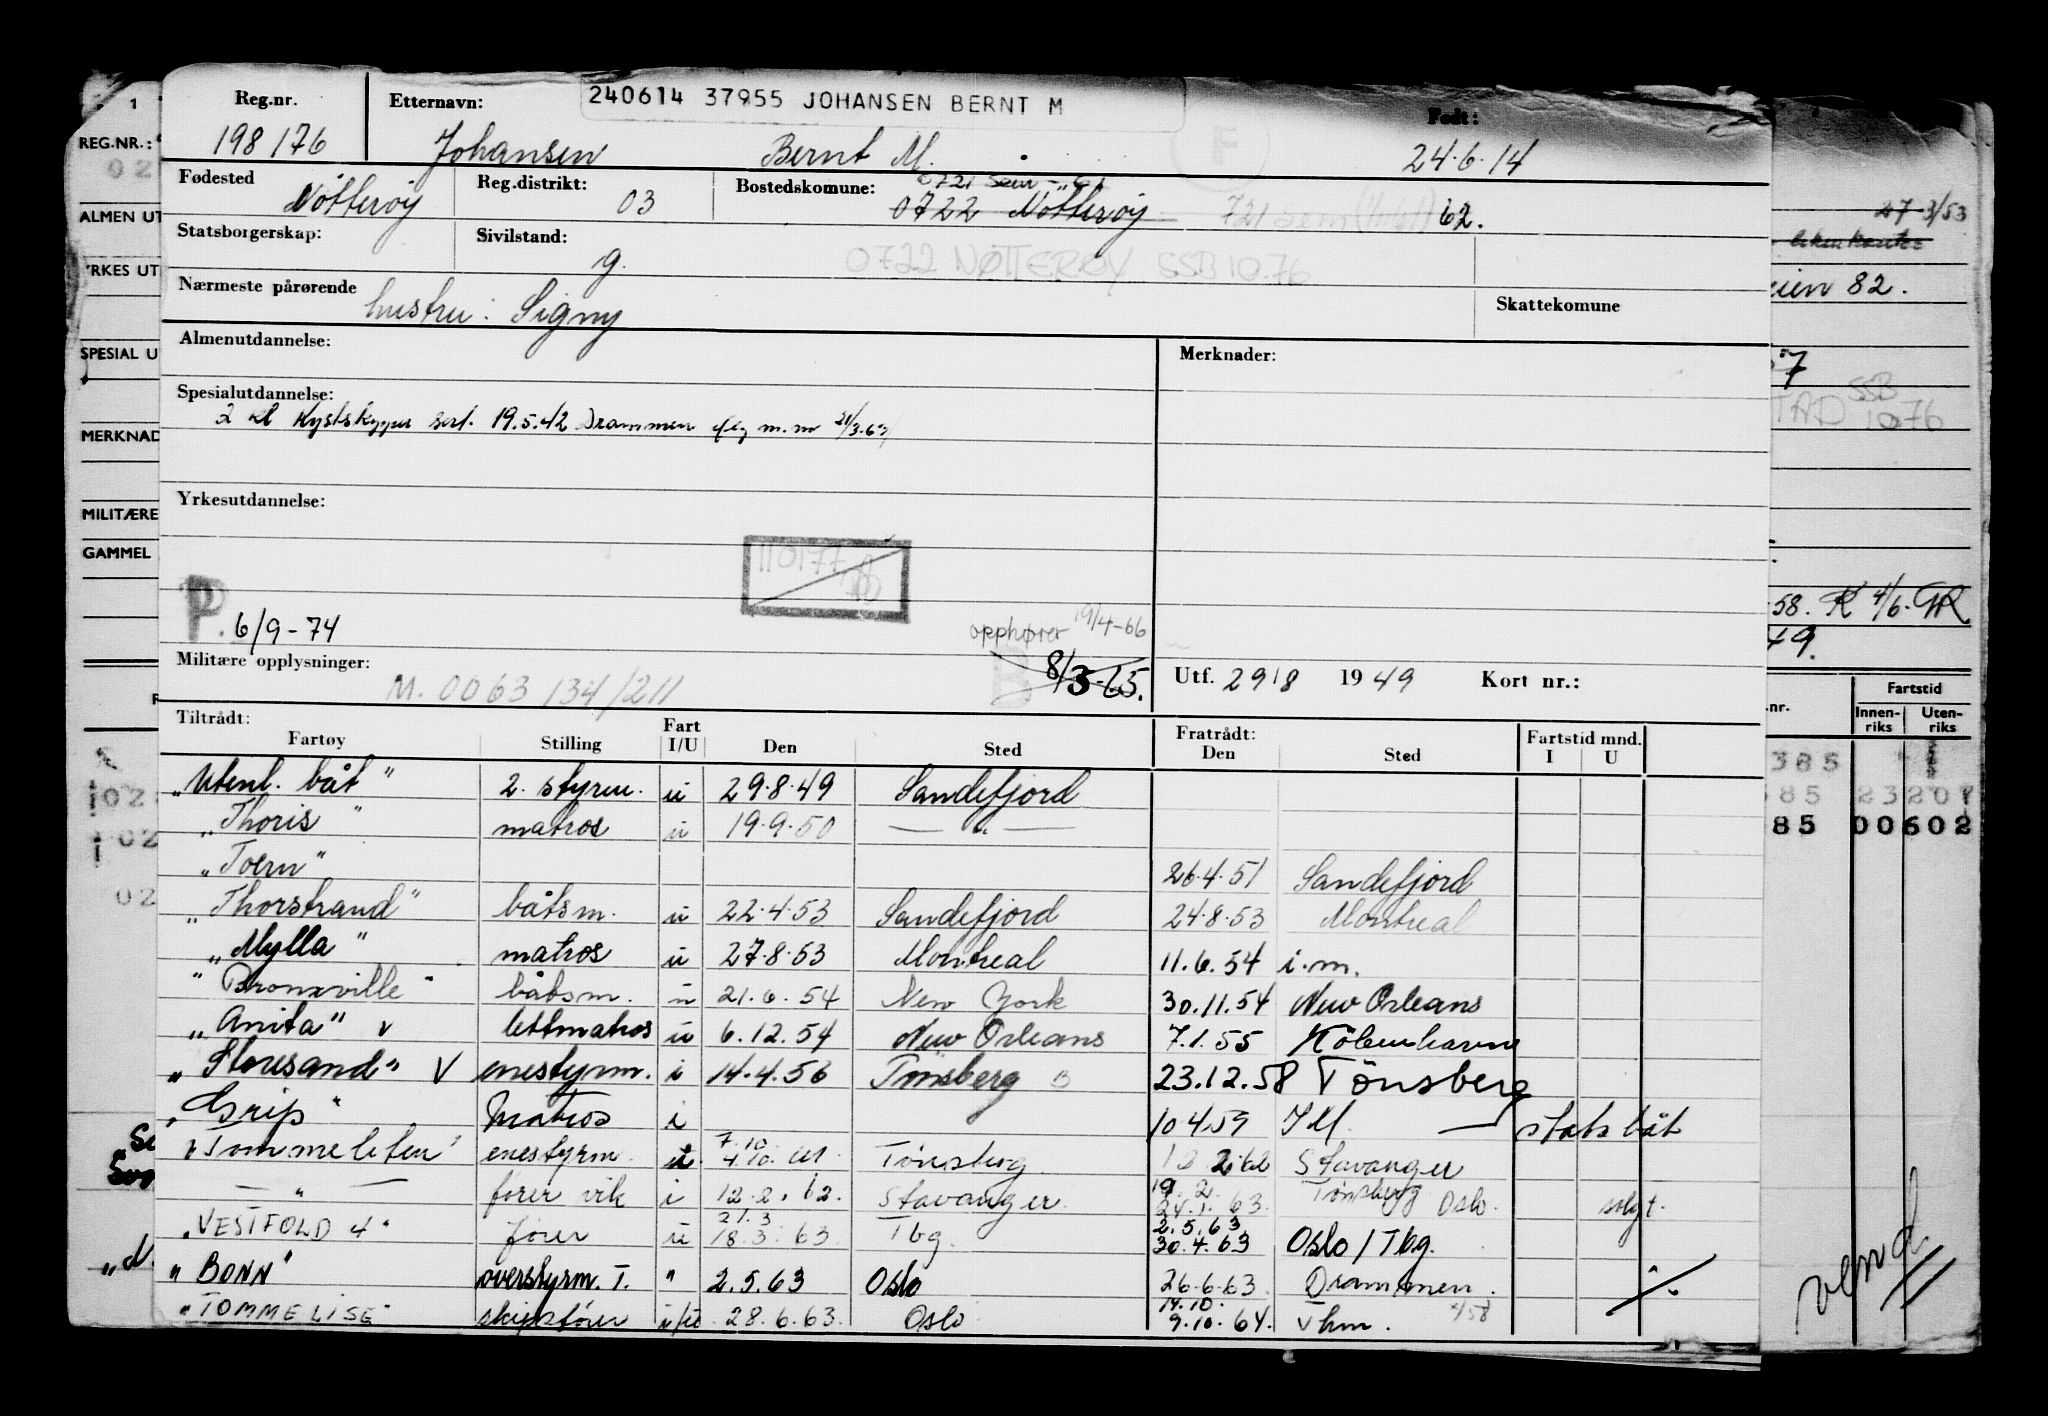 Reg.nr. Etternavn: 240614 37955 JOHANSEN BERNT M Født:
198176 Johansen Bernt M. F 24.6.14
Fødested Nötteröy Reg.distrikt: 03 Bostedskomune: 0721 Sem
0722 Nötteröy 721 Sem 62.
Statsborgerskap: Sivilstand: g. 0722 NØTTERØY SSB 10.76
Nærmeste pårørende hustru: Signy Skattekomune
Almenutdannelse: Merknader:
Spesialutdannelse:
2 kl Kystskipper sert. 19.5.42 Drammen m.m 21/3.63
Yrkesutdannelse:
110177
P. 6/9-74 opphører 19/4-66
Militære opplysninger: M. 0063 134/211 8/3-65. Utf. 29/8 1949 Kort nr.:
Tiltrådt: Fartøy Stilling Fart I/U Den Sted Fratrådt: Den Sted Fartstid mnd. I U
"Utenl. båt" 2. styrm. u 29.8.49 Sandefjord
"Thoris" matros u 19.9.50 — " —
"Toern" 26.4.51 Sandefjord
"Thorstrand" båtsm. u 22.4.53 Sandefjord 24.8.53 Montreal
"Mylla" matros u 27.8.53 Montreal 11.6.54 i.m.
"Bronxville" båtsm. u 21.6.54 New York 30.11.54 New Orleans
"Anita" v lettmatros u 6.12.54 New Orleans 7.1.55 Köbenhavn
"Storesand" V enestyrm. i 14.4.56 Tønsberg 23.12.58 Tönsberg
"Grip" Matros i 10 4.59 I M. — statsbåt
"Tommeliten" enestyrm. 7.10 4.10. Tönsberg 2.62 Stavanger
— " — fører vik i 12.2.62. Stavanger 19.2. 24.1.63. Tønsberg Oslo. solgt.
"VESTFOLD 4" fører u 21.3 18.3.63 Tbg. 2.5.63 30.4.63 Oslo / Tbg.
"BONN" overstyrm. I. " 2.5.63 Oslo 26.6.63 Drammen.
"TOMMELISE" skipsfører i/u. 28.6.63. Oslo 14.10. 9.10.64. v hm. 458
1
REG.NR.:
02
ALMEN UT
YRKES UT
SPESIAL U
MERKNAD
MILITÆRE
GAMMEL
02
02
02
27-3/53
eien 82.
7
SSB
TAD 1076
58. K 4/6. GR
49.
Fartstid
.nr. Innen-riks Uten-riks
385
85 23207
85 00602
vend